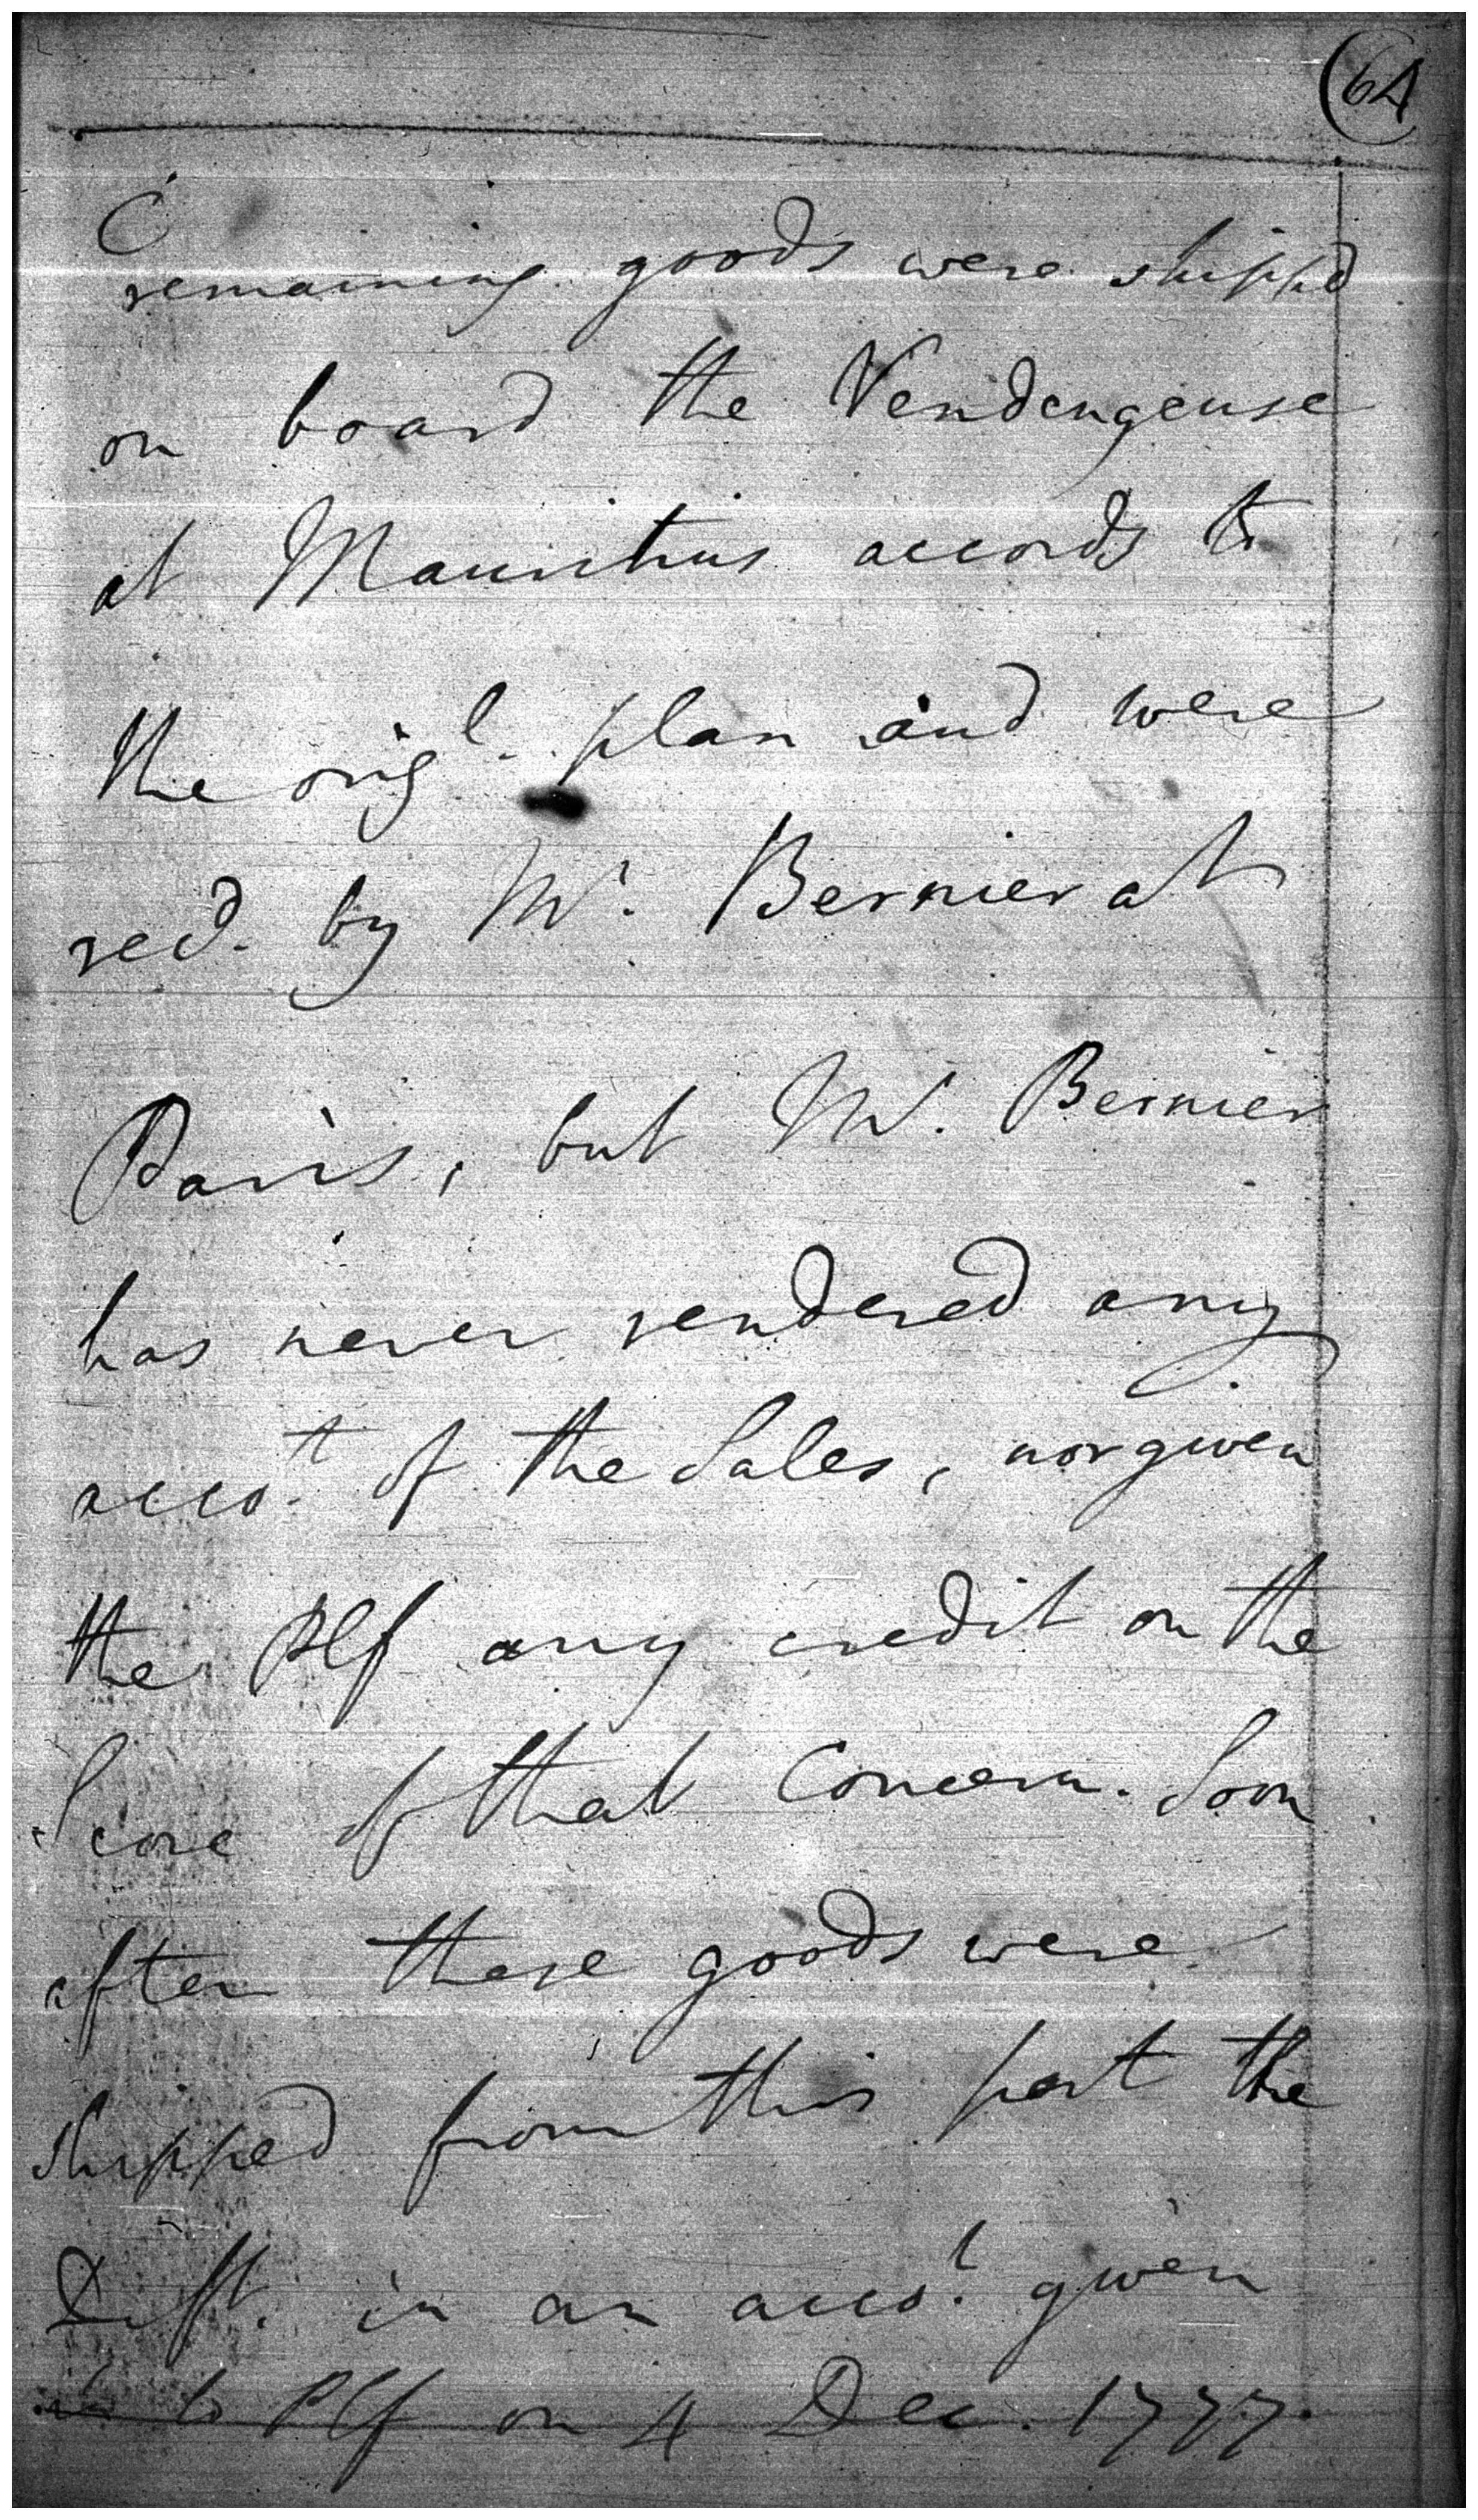 (64
remaining goods were shippd
on board the Vendengeuse
at Mauritius accords to
the origl. plan and were
recd. by Mr. Bernier at
Paris, but Mr. Bernier
has never rendered any
accot. of the Sales, nor given
the Plf any credit on the
Score of that Concern. Soon
after these goods were
shipped from this port the
Deft. in an accot. given
to Plf on 4 Dec. 1777.